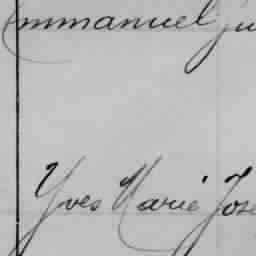 Emmanuel
Yves Marie Jose